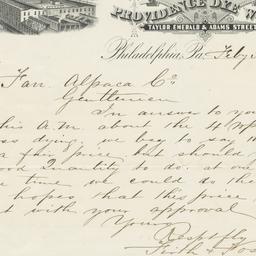 PROVIDENCE DYE W
TAYLOR, EMERALD & ADAMS STREE
Philadelphia, Pa. Feby
Farr Alpaca Co
Gentlemen
In answer to you
this A.M. about the 4
dying. we beg to say th
this price but should
ood quantity to do. at on
e time we could do the
hopes that this price
t with your approval
Yours
Respt fly
Firth & Fos